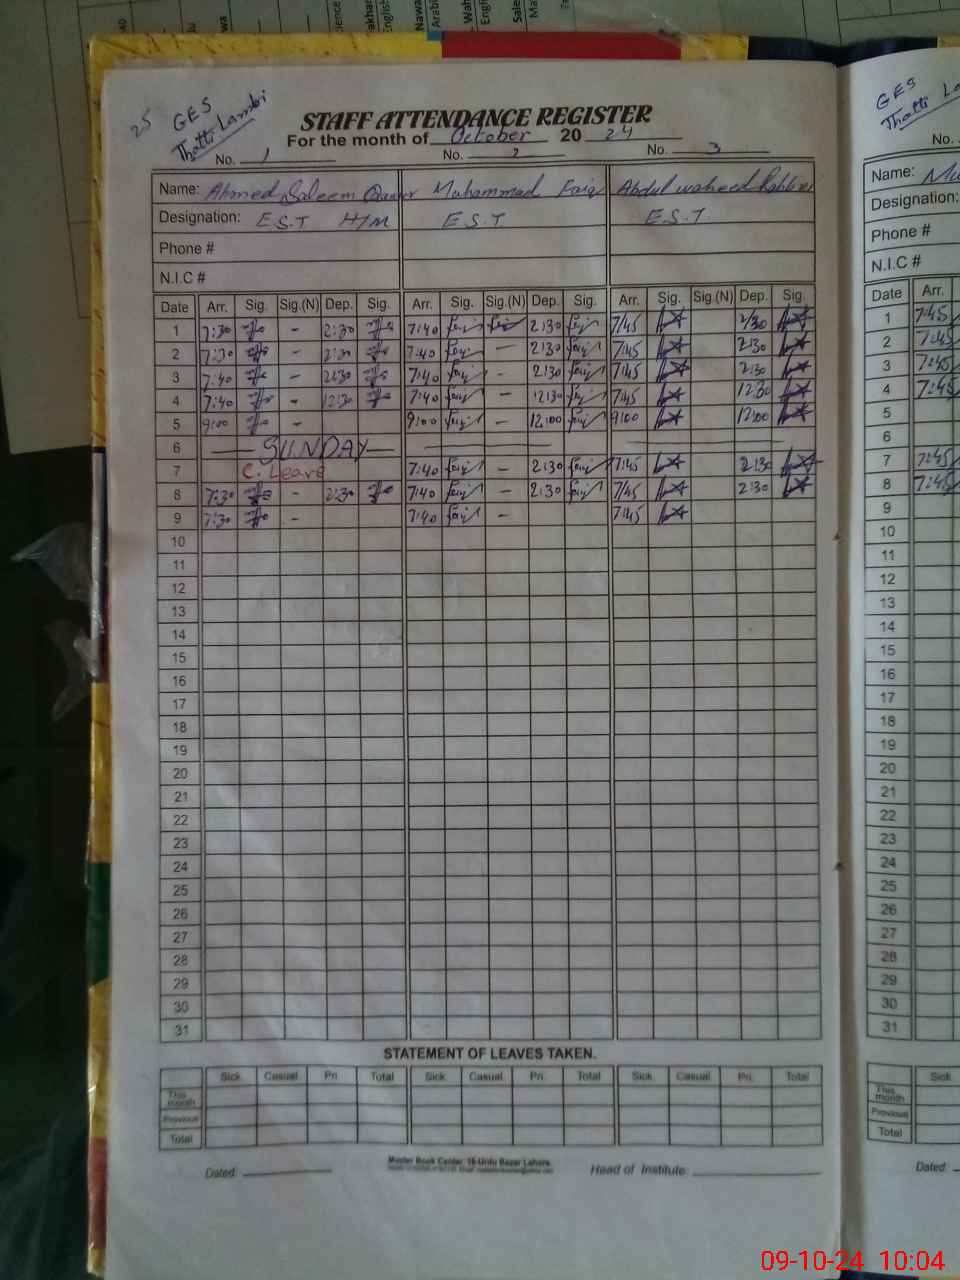 25 GES
Thatti Lambi
STAFF ATTENDANCE REGISTER
For the month of October 20 24
No. 1 No. 2 No. 3
Name: Ahmed Saleem Muhammad Faiq Abdul waheed
Designation: E.S.T H/M E.S.T E.S.T.
Phone #
N.I.C #
Date Arr. Sig. Sig.(N) Dep. Sig. Arr. Sig. Sig.(N) Dep. Sig. Arr. Sig. Sig.(N) Dep. Sig.
1 7:30 - 2:30 7:40 2:30 7/45 2/30
2 7:30 - 2:30 7:40 - 2:30 7:45 2:30
3 7:40 - 2:30 7:40 - 2:30 7/45 2:30
4 7:40 - 12:30 7:40 - 12:30 7/45 12:30
5 9:00 - 9:00 - 12:00 9:00 12:00
6 SUNDAY
7 C. Leave 7:40 - 2:30 7:45 2:30
8 7:30 - 2:30 7:40 - 2:30 7/45 2:30
9 7:30 - 7:40 - 7:45
10
11
12
13
14
15
16
17
18
19
20
21
22
23
24
25
26
27
28
29
30
31
STATEMENT OF LEAVES TAKEN.
Sick Casual Pri. Total Sick Casual Pri. Total Sick Casual Pri. Total
This month
Previous
Total
Dated: Master Book Center, 16-Urdu Bazar Lahore. Head of Institute:
GES
Thatti
No.
Name:
Designation:
Phone #
N.I.C #
Date Arr.
1 7:45
2 7:45
3 7:45
4 7:45
5
6
7 7:45
8 7:45
9
10
11
12
13
14
15
16
17
18
19
20
21
22
23
24
25
26
27
28
29
30
31
Sick
This month
Previous
Total
Dated:
09-10-24 10:04